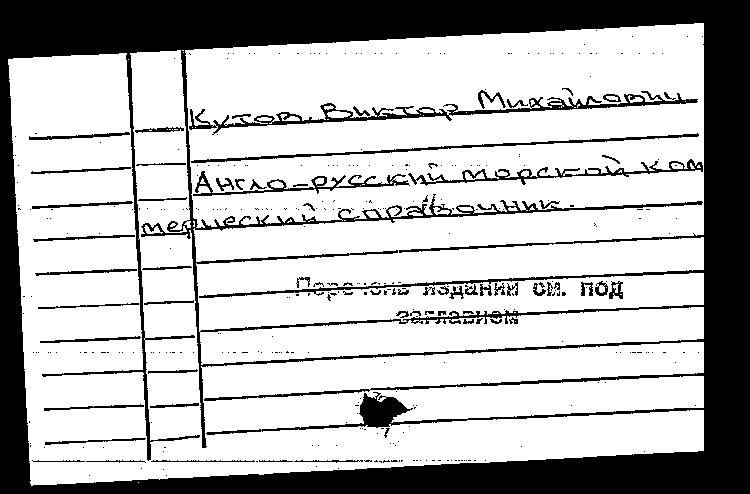 Кутов, Виктор Михайлович
Англо-русский морской ком
мерческий справочник.
Перечень изданий см. под
заглавием